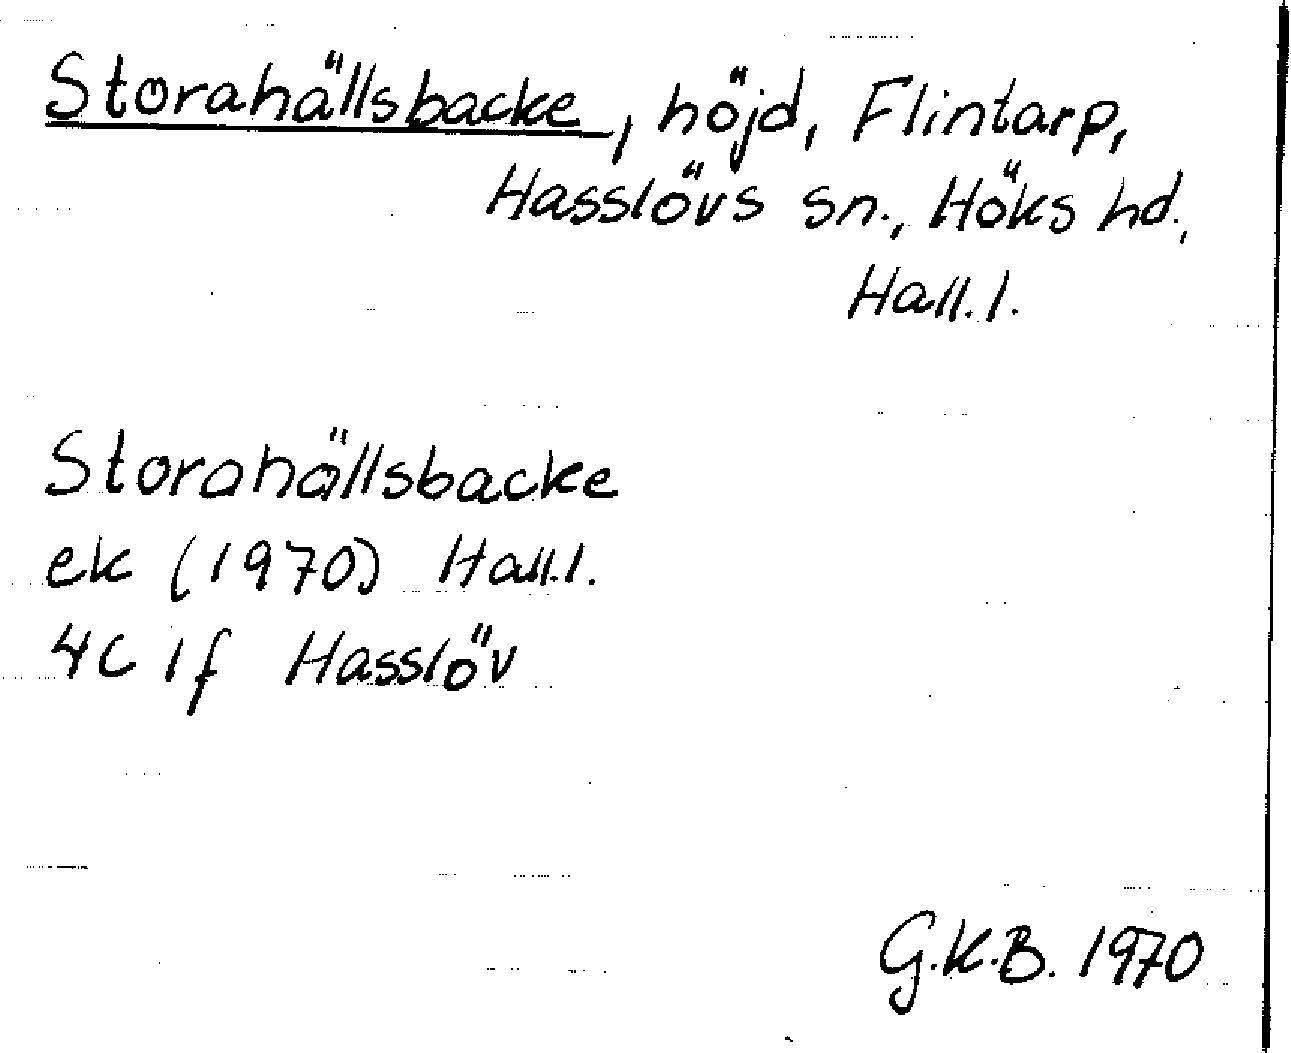 Storahällsbacke, höjd, Flintarp,
Hasslövs sn., Höks hd.,
Hall. l.
Storahällsbacke
ek (1970) Hall. l.
4C 1f Hasslöv
G.K.B. 1970